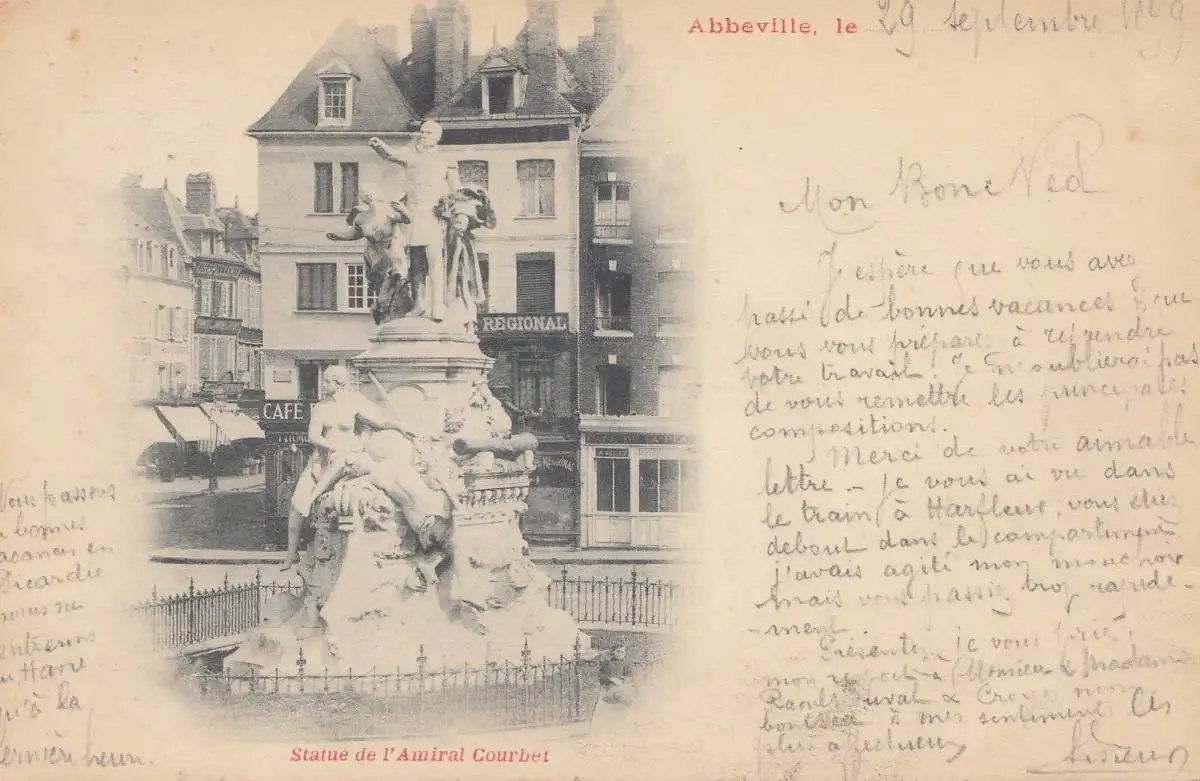 Abbeville, le 29 septembre 1899
Mon Bone Ned
J'espère que vous avez
passé de bonnes vacances & que
vous vous préparez à reprendre
votre travail. Je n'oublierai pas
de vous remettre les principales
compositions.
Merci de votre aimable
lettre - je vous ai vu dans
le train, à Harfleur, vous étiez
debout dans le compartiment
j'avais agité mon mouchoir
mais vous passiez trop rapide-
-ment.
Présentez, je vous prie,
mon respect à Monsieur & Madame
Raoul Duval & Croyez mon
bon Ned à mes sentiments les
plus affectueux
passons
bonnes
vacances en
Picardie
nous ne
rentrerons
au Havre
qu'à la
dernière heure.
REGIONAL
CAFÉ
Statue de l'Amiral Courbet